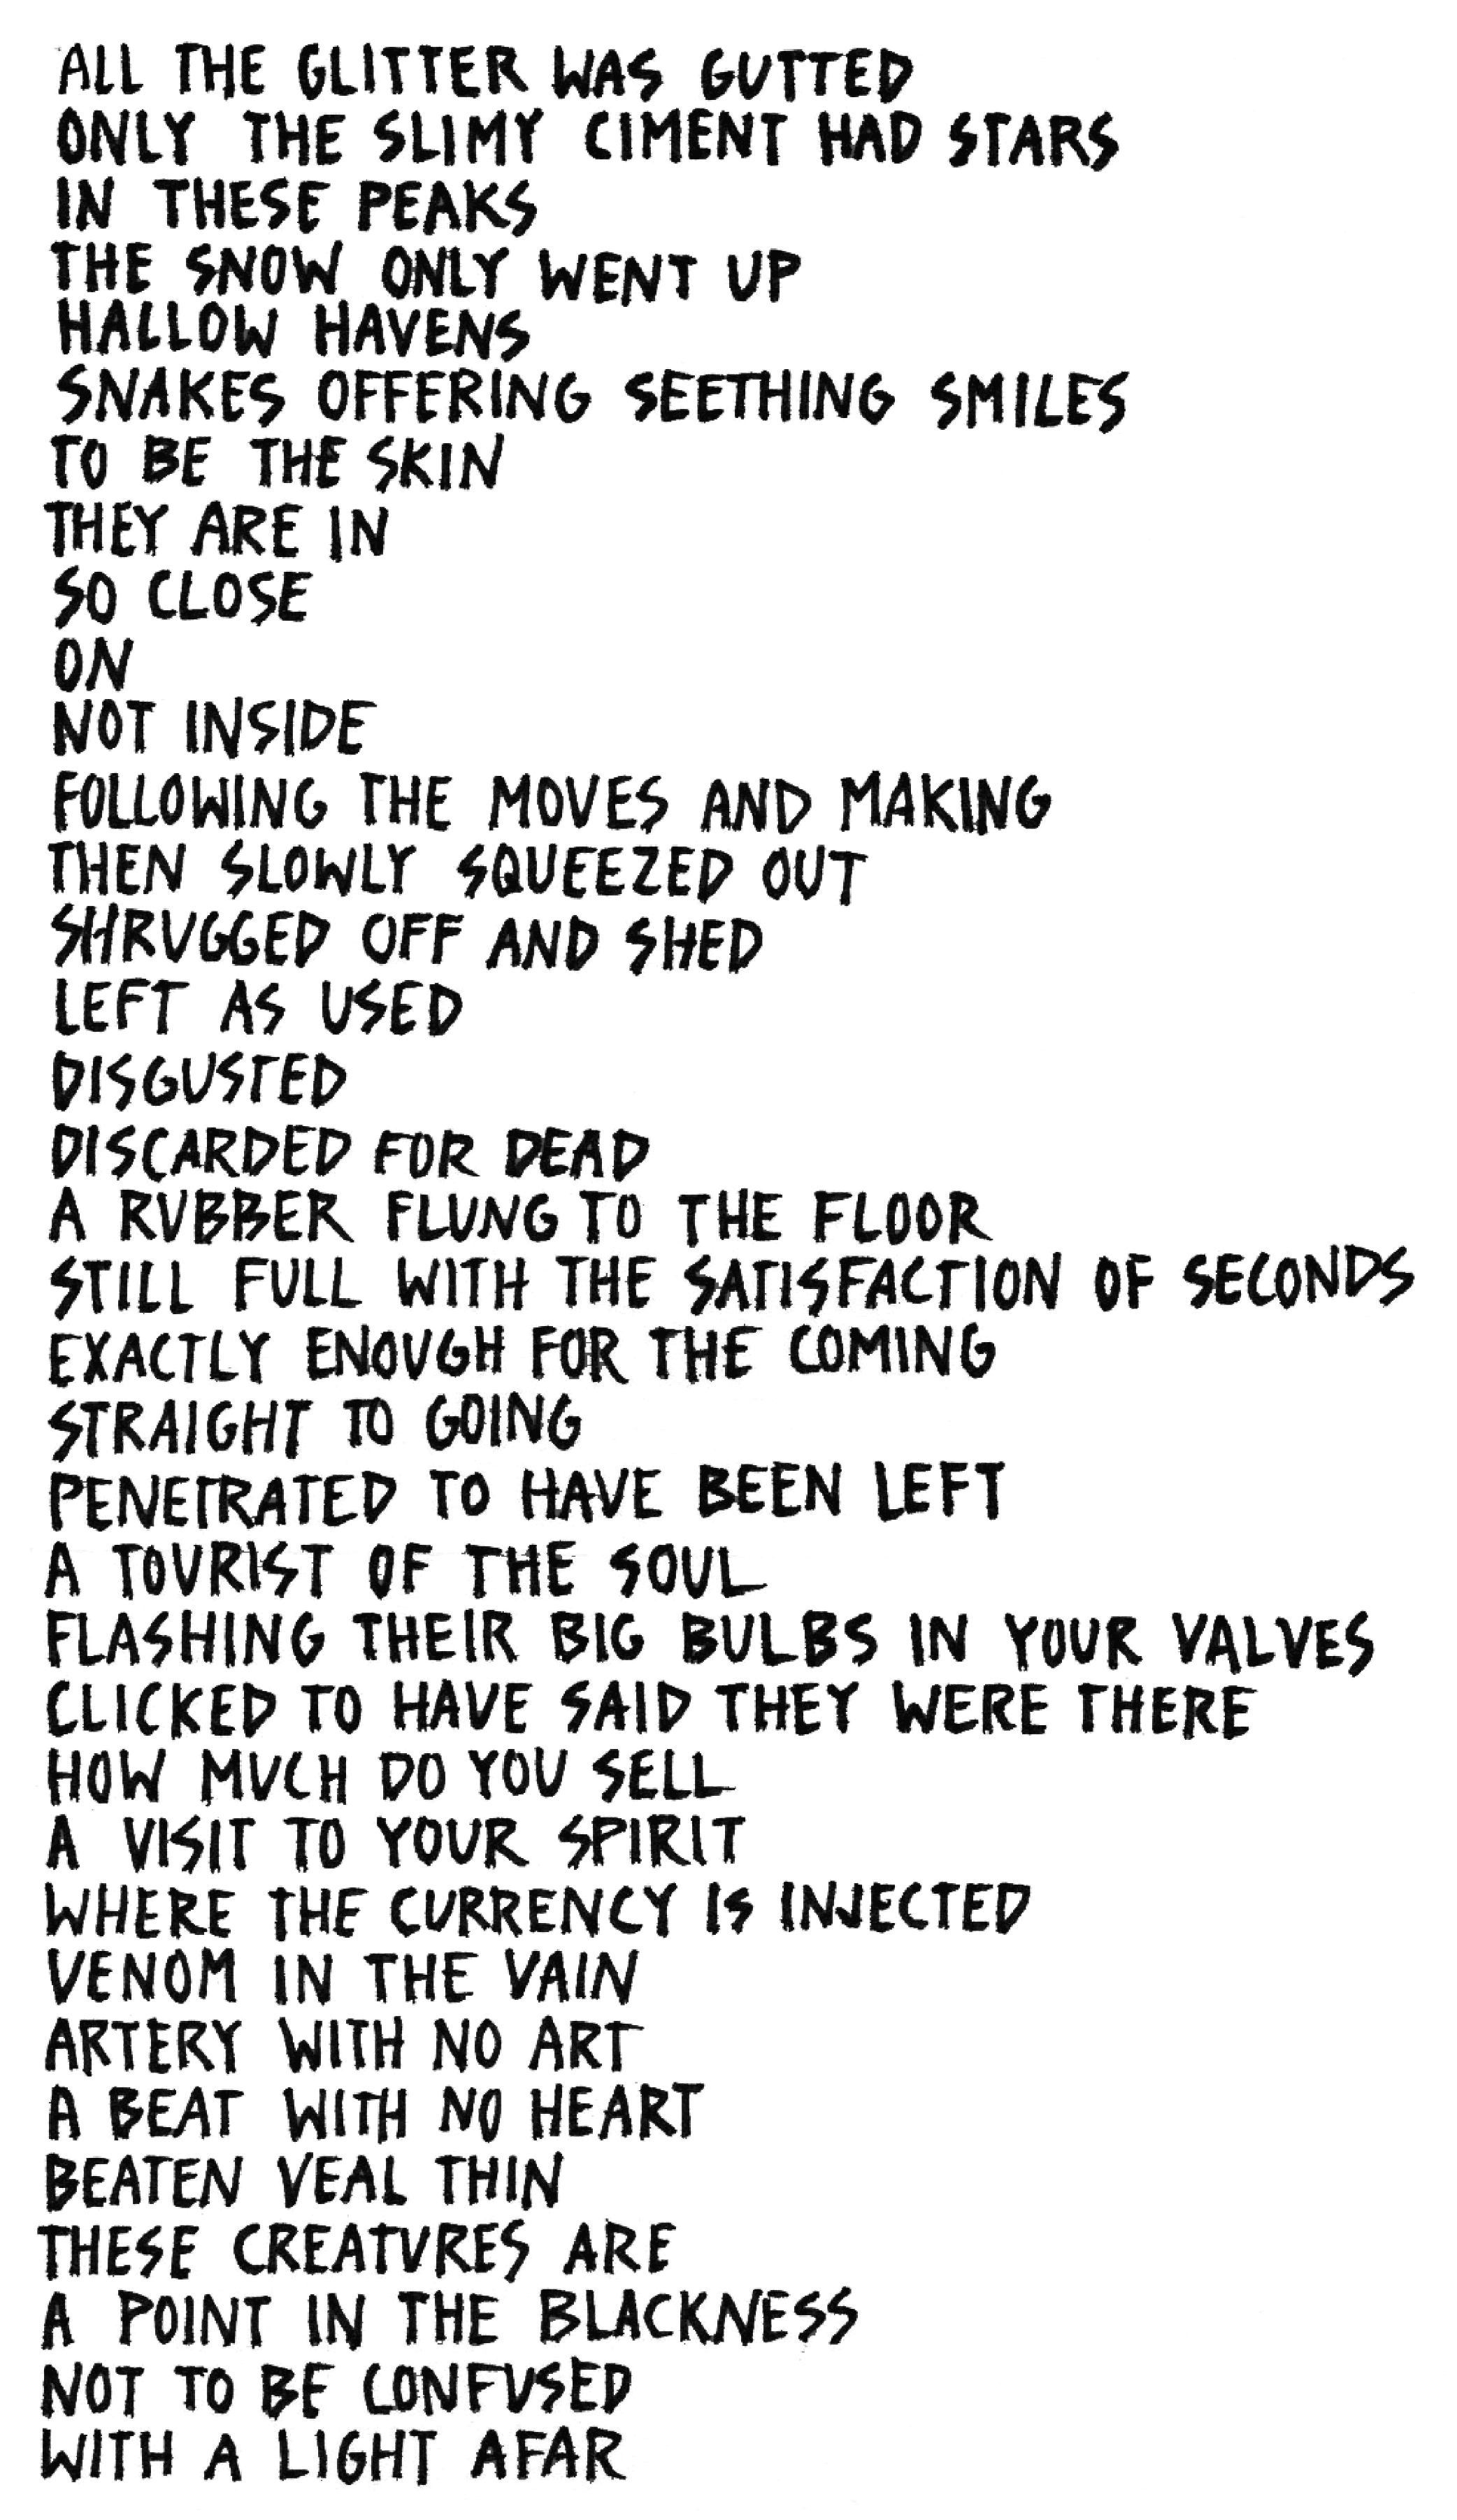 ALL THE GLITTER WAS GUTTED
ONLY THE SLIMY CIMENT HAD STARS
IN THESE PEAKS
THE SNOW ONLY WENT UP
HALLOW HAVENS
SNAKES OFFERING SEETHING SMILES
TO BE THE SKIN
THEY ARE IN
SO CLOSE
ON
NOT INSIDE
FOLLOWING THE MOVES AND MAKING
THEN SLOWLY SQUEEZED OUT
SHRUGGED OFF AND SHED
LEFT AS USED
DISGUSTED
DISCARDED FOR DEAD
A RUBBER FLUNG TO THE FLOOR
STILL FULL WITH THE SATISFACTION OF SECONDS
EXACTLY ENOUGH FOR THE COMING
STRAIGHT TO GOING
PENETRATED TO HAVE BEEN LEFT
A TOURIST OF THE SOUL
FLASHING THEIR BIG BULBS IN YOUR VALVES
CLICKED TO HAVE SAID THEY WERE THERE
HOW MUCH DO YOU SELL
A VISIT TO YOUR SPIRIT
WHERE THE CURRENCY IS INJECTED
VENOM IN THE VAIN
ARTERY WITH NO ART
A BEAT WITH NO HEART
BEATEN VEAL THIN
THESE CREATURES ARE
A POINT IN THE BLACKNESS
NOT TO BE CONFUSED
WITH A LIGHT AFAR